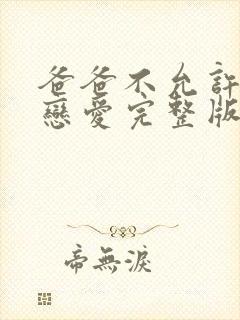 爸爸不允許
戀愛完整版
帝無淚